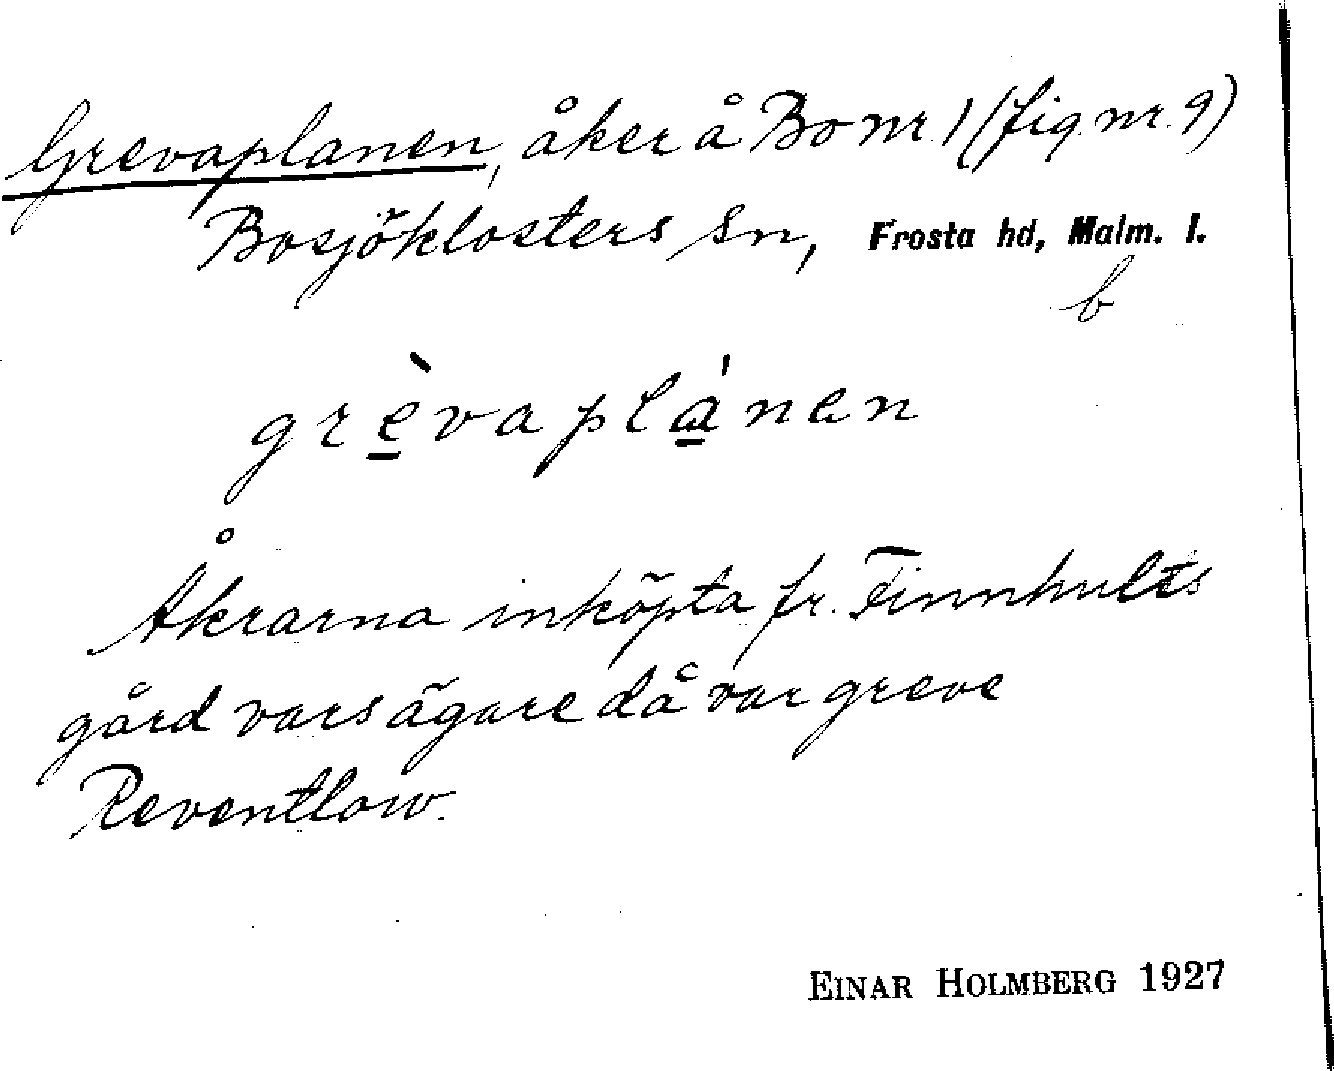 Grevaplanen, åker å Bo nr. 1 (fig. nr. 9)
Bosjöklosters sn, Frosta hd, Malm. l.
b
grèvaplánen
Åkrarna inköpta fr. Finnhults
gård vars ägare då var greve
Reventlow.
EINAR HOLMBERG 1927